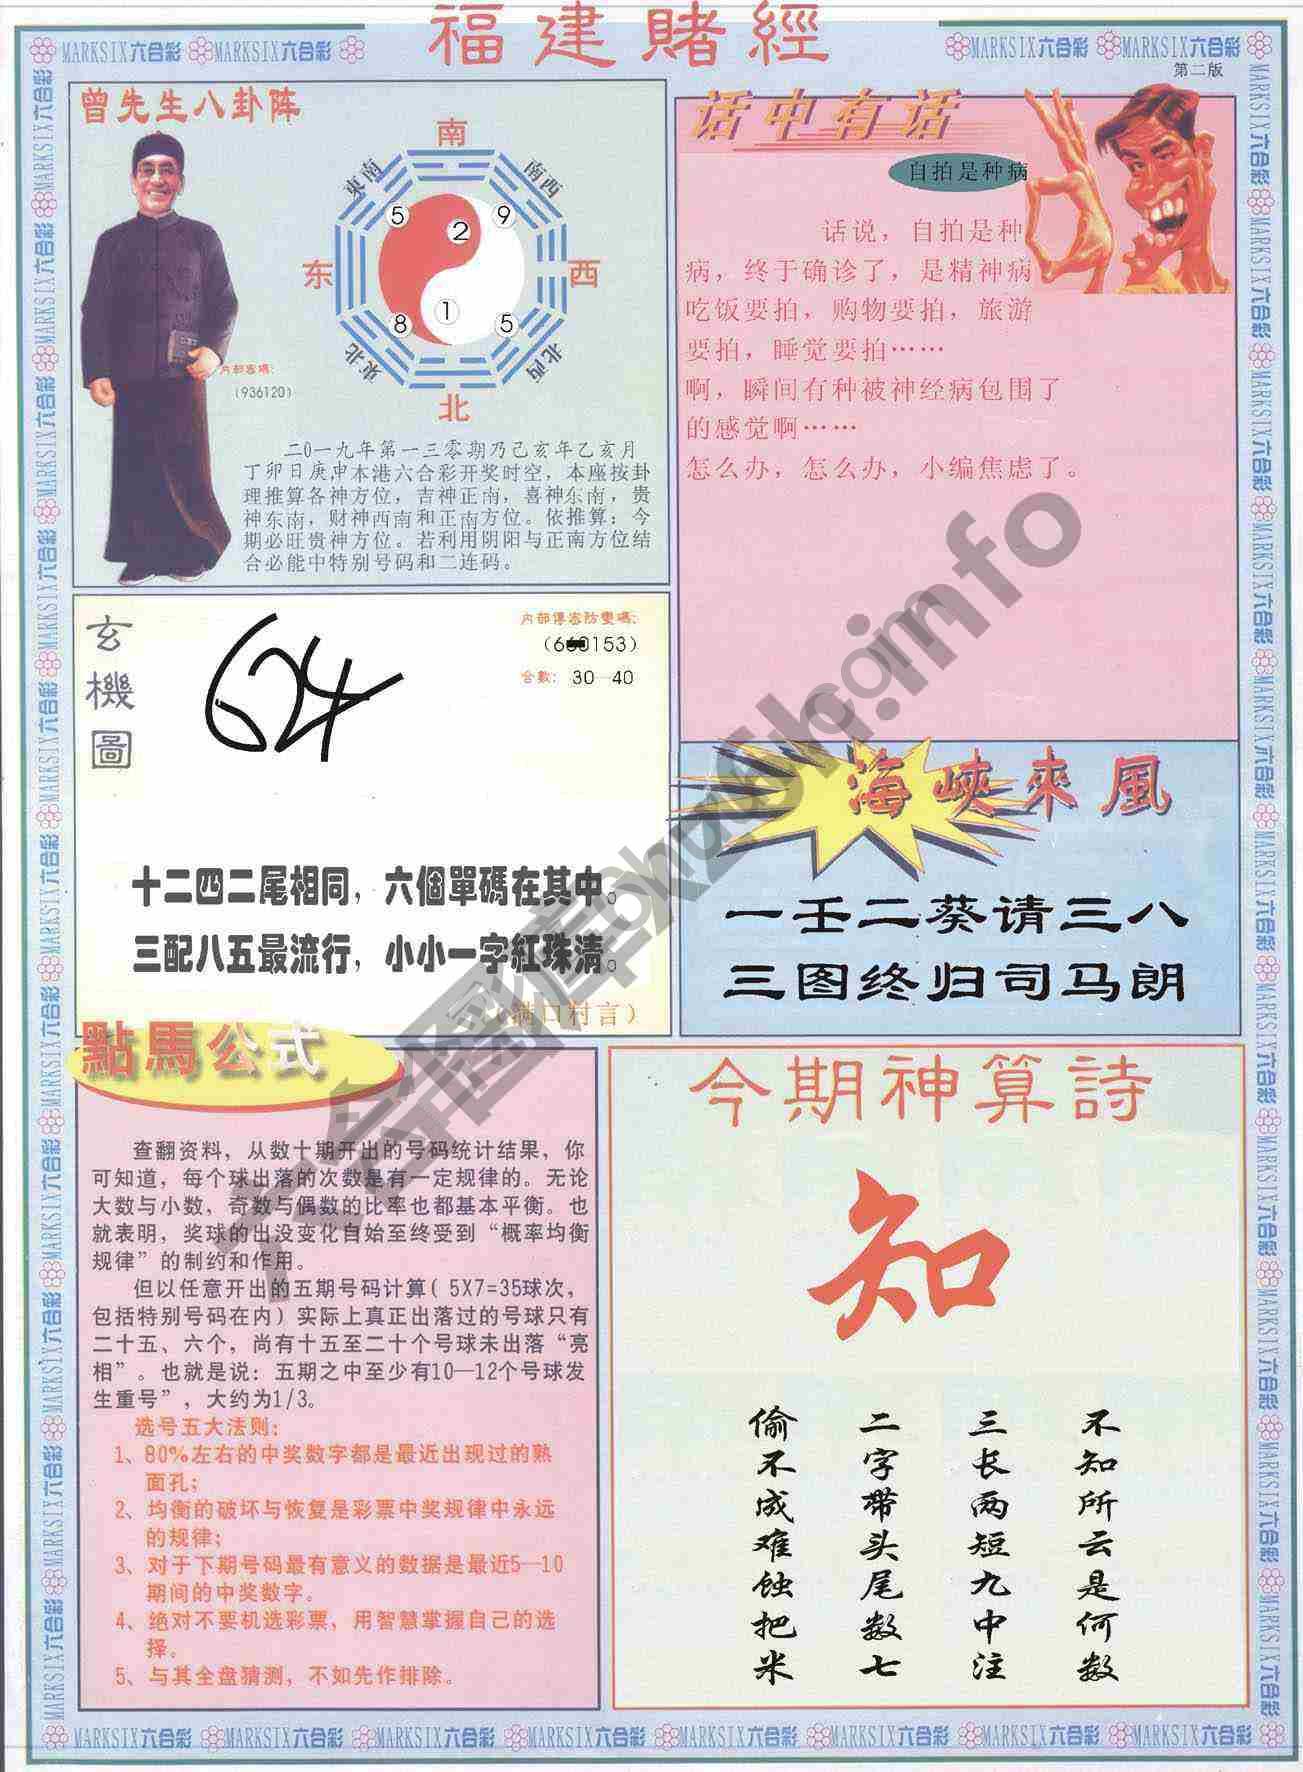 福建賭經
MARKSIX六合彩 MARKSIX六合彩
MARKSIX六合彩 MARKSIX六合彩
第二版
曾先生八卦阵
南
東南
南西
5
2
9
东
西
8
1
5
東北
北西
北
内部密碼:
(936120)
二0一九年第一三零期乃己亥年乙亥月
丁卯日庚申本港六合彩开奖时空，本座按卦
理推算各神方位，吉神正南，喜神东南，贵
神东南，财神西南和正南方位。依推算：今
期必旺贵神方位。若利用阴阳与正南方位结
合必能中特别号码和二连码。
话中有话
自拍是种病
话说，自拍是种
病，终于确诊了，是精神病
吃饭要拍，购物要拍，旅游
要拍，睡觉要拍……
啊，瞬间有种被神经病包围了
的感觉啊……
怎么办，怎么办，小编焦虑了。
玄機圖
内部傳密防變碼:
合數: 30—40
十二四二尾相同，六個單碼在其中。
三配八五最流行，小小一字紅珠清。
（满口村言）
海峽來風
一壬二葵请三八
三图终归司马朗
點馬公式
查翻资料，从数十期开出的号码统计结果，你
可知道，每个球出落的次数是有一定规律的。无论
大数与小数，奇数与偶数的比率也都基本平衡。也
就表明，奖球的出没变化自始至终受到“概率均衡
规律”的制约和作用。
但以任意开出的五期号码计算( 5X7=35球次，
包括特别号码在内）实际上真正出落过的号球只有
二十五、六个，尚有十五至二十个号球未出落“亮
相”。也就是说：五期之中至少有10—12个号球发
生重号”，大约为1/3。
选号五大法则：
1、80%左右的中奖数字都是最近出现过的熟
面孔；
2、均衡的破坏与恢复是彩票中奖规律中永远
的规律；
3、对于下期号码最有意义的数据是最近5—10
期间的中奖数字。
4、绝对不要机选彩票，用智慧掌握自己的选
择。
5、与其全盘猜测，不如先作排除。
今期神算詩
知
不知所云是何数
三长两短九中注
二字带头尾数七
偷不成难蚀把米
MARKSIX六合彩 MARKSIX六合彩 MARKSIX六合彩 MARKSIX六合彩 MARKSIX六合彩 MARKSIX六合彩 MARKSIX六合彩 MARKSIX六合彩